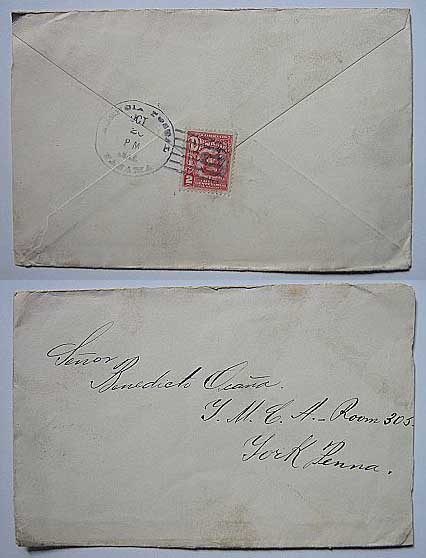 OCT
PM
PANAMA
2
Señor
Benedicto Ocaña.
Y. M. C. A. - Room 305
York Penna.